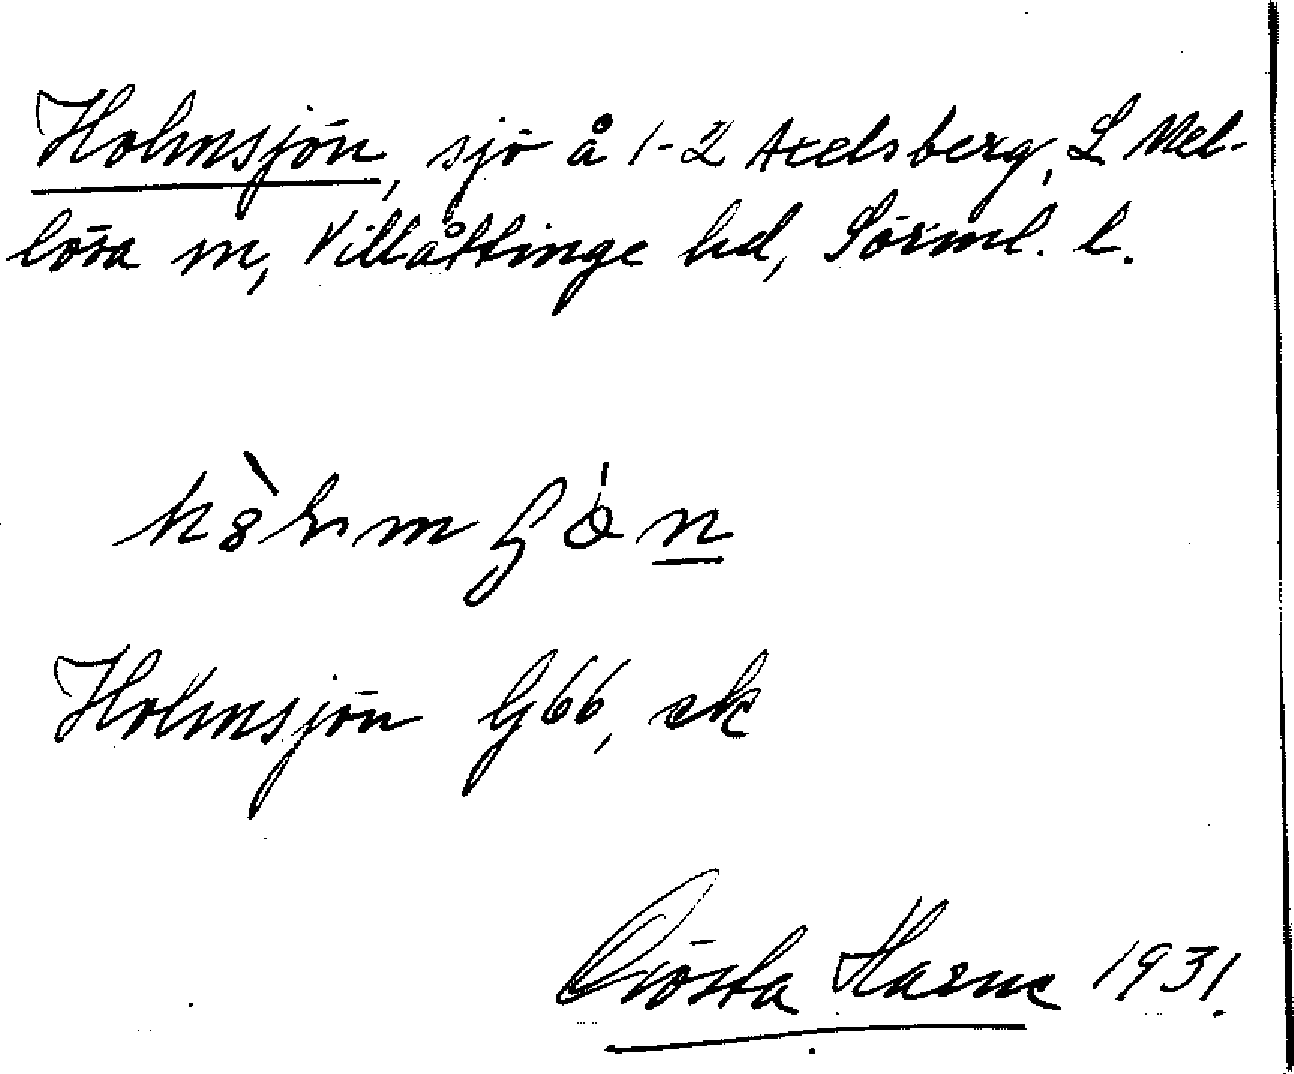 Holmsjön, sjö å 1-2 Axelsberg, L Mel-
lösa sn, Villåttinge hd, Sörml. l.
Holmsjön G66, ek
Gösta Harne 1931.